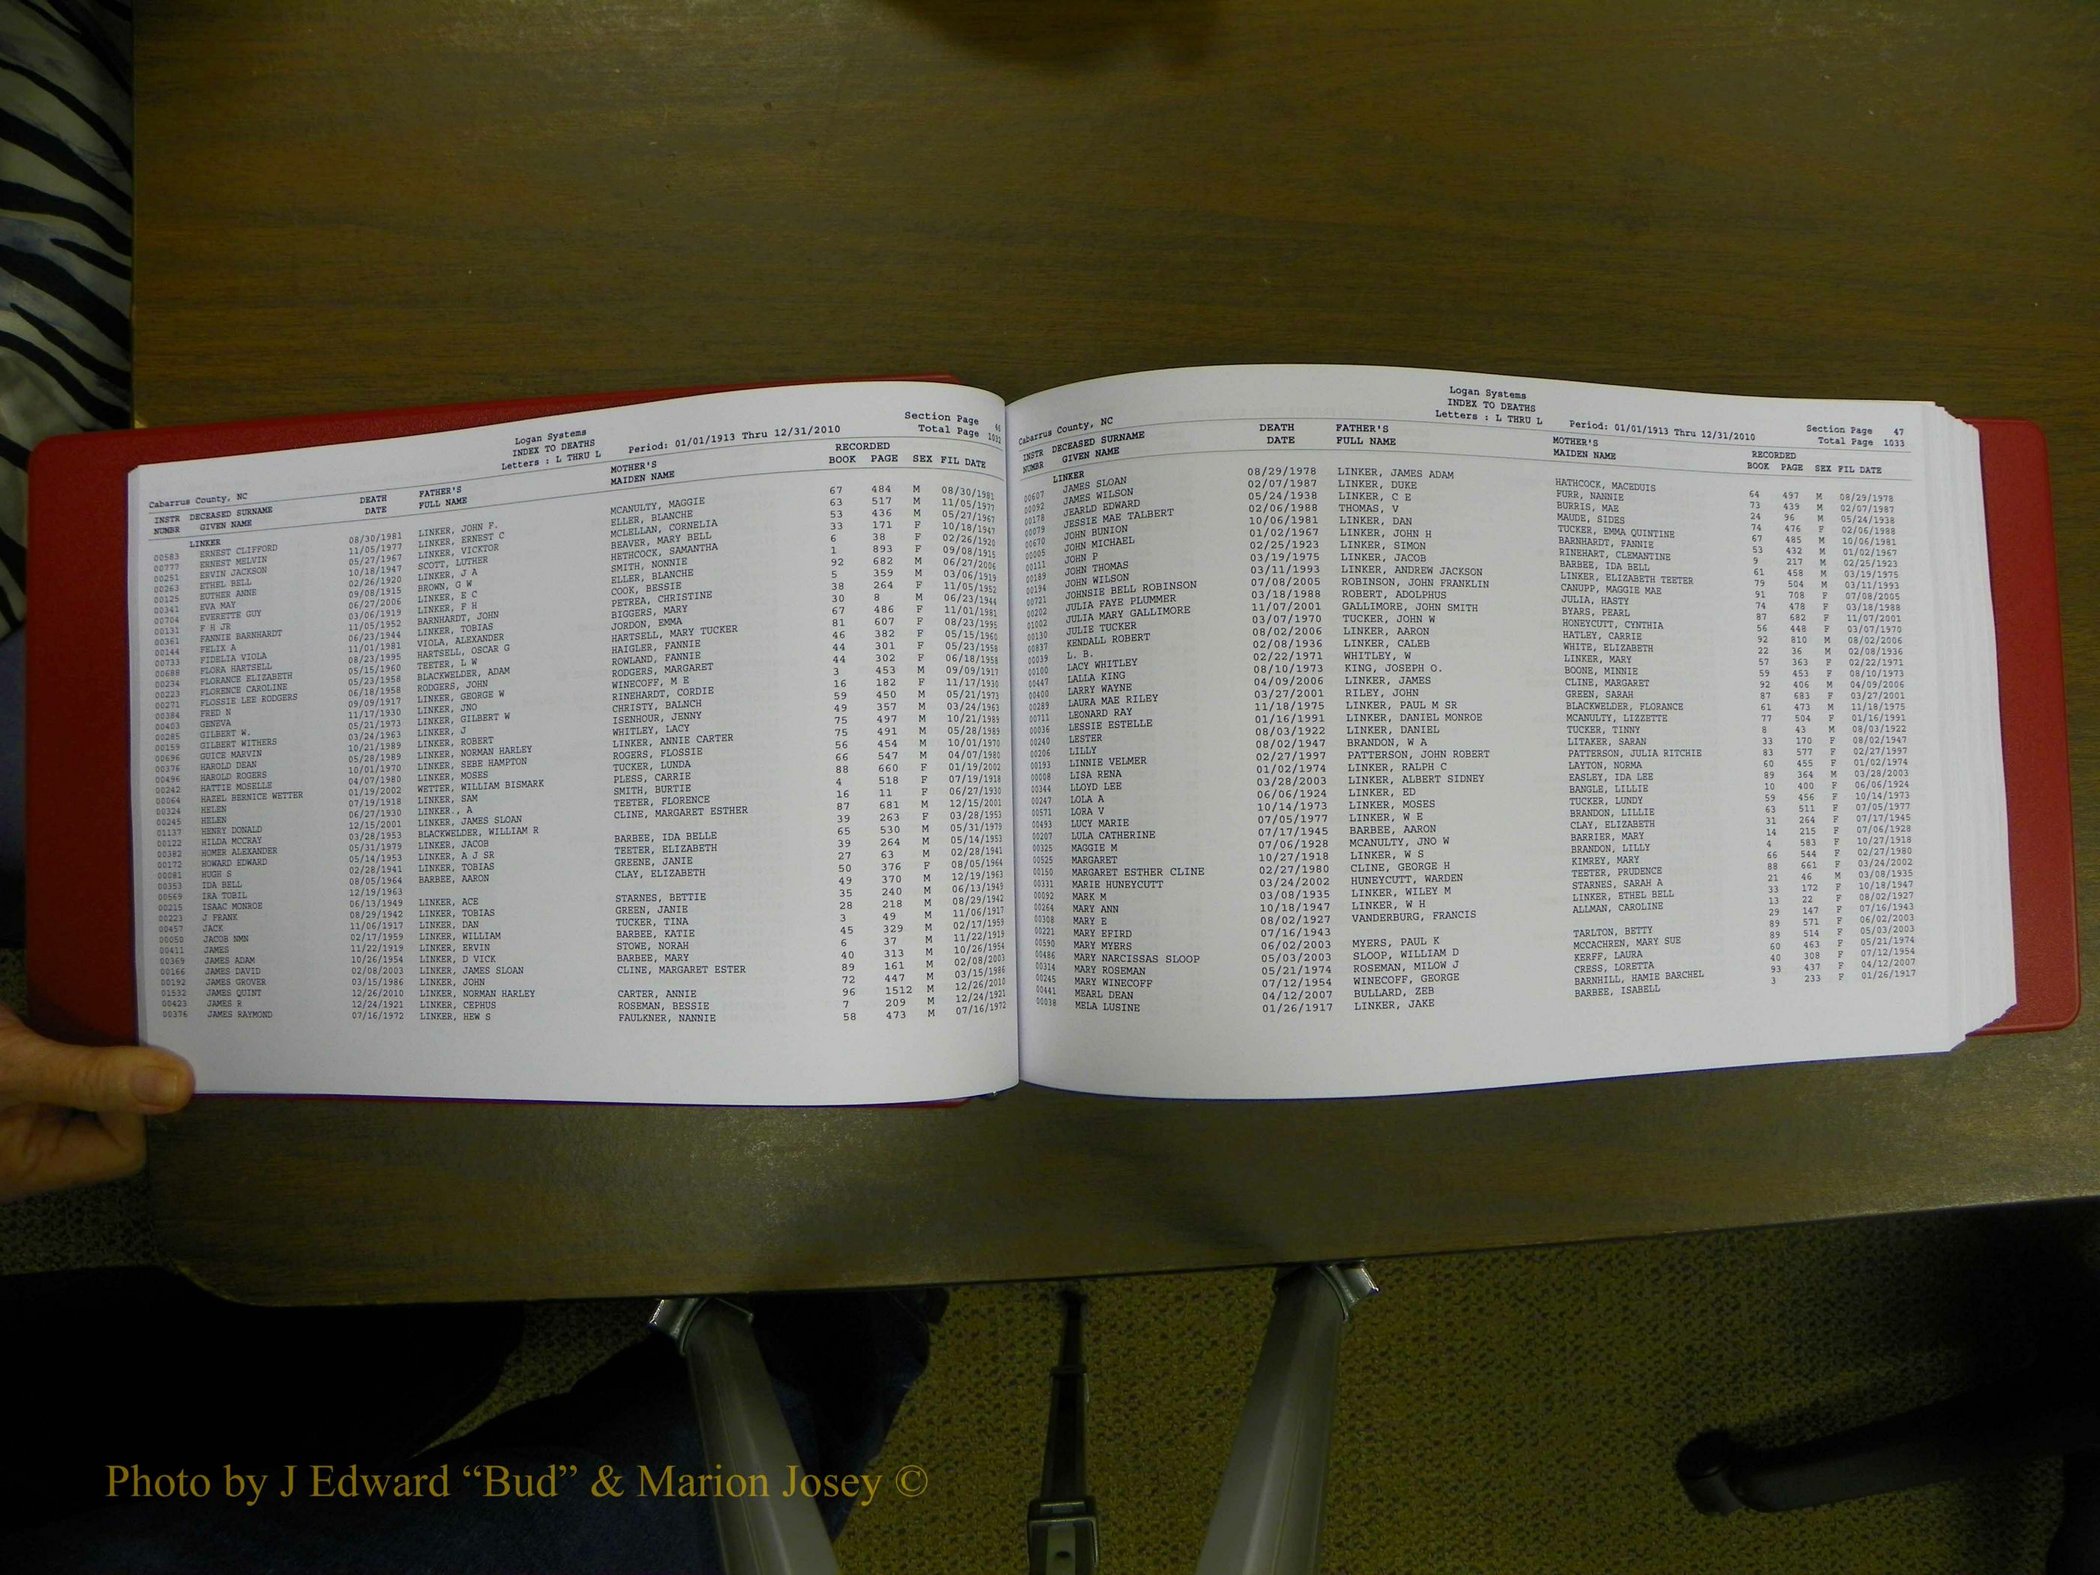 Logan Systems
INDEX TO DEATHS
Letters : L THRU L
Period: 01/01/1913 Thru 12/31/2010
Section Page 46
Total Page 1032
Cabarrus County, NC
INSTR DECEASED SURNAME DEATH FATHER'S MOTHER'S RECORDED
NUMBR GIVEN NAME DATE FULL NAME MAIDEN NAME BOOK PAGE SEX FIL DATE
LINKER
00583 ERNEST CLIFFORD 08/30/1981 LINKER, JOHN F. MCANULTY, MAGGIE 67 484 M 08/30/1981
00777 ERNEST MELVIN 11/05/1977 LINKER, ERNEST C ELLER, BLANCHE 63 517 M 11/05/1977
00251 ERVIN JACKSON 05/27/1967 LINKER, VICKTOR MCLELLAN, CORNELIA 53 436 M 05/27/1967
00263 ETHEL BELL 10/18/1947 SCOTT, LUTHER BEAVER, MARY BELL 33 171 F 10/18/1947
00125 EUTHER ANNE 02/26/1920 LINKER, J A HETHCOCK, SAMANTHA 6 38 F 02/26/1920
00341 EVA MAY 09/08/1915 BROWN, G W SMITH, NONNIE 1 893 F 09/08/1915
00704 EVERETTE GUY 06/27/2006 LINKER, E C ELLER, BLANCHE 92 682 M 06/27/2006
00131 F H JR 03/06/1919 LINKER, F H COOK, BESSIE 5 359 M 03/06/1919
00361 FANNIE BARNHARDT 11/05/1952 BARNHARDT, JOHN PETREA, CHRISTINE 38 264 F 11/05/1952
00144 FELIX A 06/23/1944 LINKER, TOBIAS BIGGERS, MARY 30 8 M 06/23/1944
00733 FIDELIA VIOLA 11/01/1981 VIOLA, ALEXANDER JORDON, EMMA 67 486 F 11/01/1981
00688 FLORA HARTSELL 08/23/1995 HARTSELL, OSCAR G HARTSELL, MARY TUCKER 81 607 F 08/23/1995
00234 FLORANCE ELIZABETH 05/15/1960 TEETER, L W HAIGLER, FANNIE 46 382 F 05/15/1960
00223 FLORENCE CAROLINE 05/23/1958 BLACKWELDER, ADAM ROWLAND, FANNIE 44 301 F 05/23/1958
00271 FLOSSIE LEE RODGERS 06/18/1958 RODGERS, JOHN RODGERS, MARGARET 44 302 F 06/18/1958
00384 FRED N 09/09/1917 LINKER, GEORGE W WINECOFF, M E 3 453 M 09/09/1917
00403 GENEVA 11/17/1930 LINKER, JNO RINEHARDT, CORDIE 16 182 F 11/17/1930
00285 GILBERT W. 05/21/1973 LINKER, GILBERT W CHRISTY, BALNCH 59 450 M 05/21/1973
00159 GILBERT WITHERS 03/24/1963 LINKER, J ISENHOUR, JENNY 49 357 M 03/24/1963
00696 GUICE MARVIN 10/21/1989 LINKER, ROBERT WHITLEY, LACY 75 497 M 10/21/1989
00376 HAROLD DEAN 05/28/1989 LINKER, NORMAN HARLEY LINKER, ANNIE CARTER 75 491 M 05/28/1989
00496 HAROLD ROGERS 10/01/1970 LINKER, SEBE HAMPTON ROGERS, FLOSSIE 56 454 M 10/01/1970
00242 HATTIE MOSELLE 04/07/1980 LINKER, MOSES TUCKER, LUNDA 66 547 M 04/07/1980
00064 HAZEL BERNICE WETTER 01/19/2002 WETTER, WILLIAM BISMARK PLESS, CARRIE 88 660 F 01/19/2002
00324 HELEN 07/19/1918 LINKER, SAM SMITH, BURTIE 4 518 F 07/19/1918
00245 HELEN 06/27/1930 LINKER., A TEETER, FLORENCE 16 11 F 06/27/1930
01137 HENRY DONALD 12/15/2001 LINKER, JAMES SLOAN CLINE, MARGARET ESTHER 87 681 M 12/15/2001
00122 HILDA MCCRAY 03/28/1953 BLACKWELDER, WILLIAM R 39 263 F 03/28/1953
00382 HOMER ALEXANDER 05/31/1979 LINKER, JACOB BARBEE, IDA BELLE 65 530 M 05/31/1979
00172 HOWARD EDWARD 05/14/1953 LINKER, A J SR TEETER, ELIZABETH 39 264 M 05/14/1953
00081 HUGH S 02/28/1941 LINKER, TOBIAS GREENE, JANIE 27 63 M 02/28/1941
00353 IDA BELL 08/05/1964 BARBEE, AARON CLAY, ELIZABETH 50 376 F 08/05/1964
00569 IRA TOBIL 12/19/1963 49 370 M 12/19/1963
00215 ISAAC MONROE 06/13/1949 LINKER, ACE STARNES, BETTIE 35 240 M 06/13/1949
00223 J FRANK 08/29/1942 LINKER, TOBIAS GREEN, JANIE 28 218 M 08/29/1942
00457 JACK 11/06/1917 LINKER, DAN TUCKER, TINA 3 49 M 11/06/1917
00050 JACOB NMN 02/17/1959 LINKER, WILLIAM BARBEE, KATIE 45 329 M 02/17/1959
00411 JAMES 11/22/1919 LINKER, ERVIN STOWE, NORAH 6 37 M 11/22/1919
00369 JAMES ADAM 10/26/1954 LINKER, D VICK BARBEE, MARY 40 313 M 10/26/1954
00166 JAMES DAVID 02/08/2003 LINKER, JAMES SLOAN CLINE, MARGARET ESTER 89 161 M 02/08/2003
00192 JAMES GROVER 03/15/1986 LINKER, JOHN 72 447 M 03/15/1986
01532 JAMES QUINT 12/26/2010 LINKER, NORMAN HARLEY CARTER, ANNIE 96 1512 M 12/26/2010
00423 JAMES R 12/24/1921 LINKER, CEPHUS ROSEMAN, BESSIE 7 209 M 12/24/1921
00376 JAMES RAYMOND 07/16/1972 LINKER, HEW S FAULKNER, NANNIE 58 473 M 07/16/1972
Logan Systems
INDEX TO DEATHS
Letters : L THRU L
Period: 01/01/1913 Thru 12/31/2010
Section Page 47
Total Page 1033
Cabarrus County, NC
INSTR DECEASED SURNAME DEATH FATHER'S MOTHER'S RECORDED
NUMBR GIVEN NAME DATE FULL NAME MAIDEN NAME BOOK PAGE SEX FIL DATE
LINKER
00607 JAMES SLOAN 08/29/1978 LINKER, JAMES ADAM HATHCOCK, MACEDUIS 64 497 M 08/29/1978
00092 JAMES WILSON 02/07/1987 LINKER, DUKE FURR, NANNIE 73 439 M 02/07/1987
00178 JEARLD EDWARD 05/24/1938 LINKER, C E BURRIS, MAE 24 96 M 05/24/1938
00079 JESSIE MAE TALBERT 02/06/1988 THOMAS, V MAUDE, SIDES 74 476 F 02/06/1988
00670 JOHN BUNION 10/06/1981 LINKER, DAN TUCKER, EMMA QUINTINE 67 485 M 10/06/1981
00005 JOHN MICHAEL 01/02/1967 LINKER, JOHN H BARNHARDT, FANNIE 53 432 M 01/02/1967
00111 JOHN P 02/25/1923 LINKER, SIMON RINEHART, CLEMANTINE 9 217 M 02/25/1923
00189 JOHN THOMAS 03/19/1975 LINKER, JACOB BARBEE, IDA BELL 61 458 M 03/19/1975
00194 JOHN WILSON 03/11/1993 LINKER, ANDREW JACKSON LINKER, ELIZABETH TEETER 79 504 M 03/11/1993
00721 JOHNSIE BELL ROBINSON 07/08/2005 ROBINSON, JOHN FRANKLIN CANUPP, MAGGIE MAE 91 708 F 07/08/2005
00202 JULIA FAYE PLUMMER 03/18/1988 ROBERT, ADOLPHUS JULIA, HASTY 74 478 F 03/18/1988
01002 JULIA MARY GALLIMORE 11/07/2001 GALLIMORE, JOHN SMITH BYARS, PEARL 87 682 F 11/07/2001
00130 JULIE TUCKER 03/07/1970 TUCKER, JOHN W HONEYCUTT, CYNTHIA 56 448 F 03/07/1970
00837 KENDALL ROBERT 08/02/2006 LINKER, AARON HATLEY, CARRIE 92 810 M 08/02/2006
00039 L. B. 02/08/1936 LINKER, CALEB WHITE, ELIZABETH 22 36 M 02/08/1936
00100 LACY WHITLEY 02/22/1971 WHITLEY, W LINKER, MARY 57 363 F 02/22/1971
00447 LALLA KING 08/10/1973 KING, JOSEPH O. BOONE, MINNIE 59 453 F 08/10/1973
00400 LARRY WAYNE 04/09/2006 LINKER, JAMES CLINE, MARGARET 92 406 M 04/09/2006
00289 LAURA MAE RILEY 03/27/2001 RILEY, JOHN GREEN, SARAH 87 683 F 03/27/2001
00711 LEONARD RAY 11/18/1975 LINKER, PAUL M SR BLACKWELDER, FLORANCE 61 473 M 11/18/1975
00036 LESSIE ESTELLE 01/16/1991 LINKER, DANIEL MONROE MCANULTY, LIZZETTE 77 504 F 01/16/1991
00240 LESTER 08/03/1922 LINKER, DANIEL TUCKER, TINNY 8 43 M 08/03/1922
00206 LILLY 08/02/1947 BRANDON, W A LITAKER, SARAN 33 170 F 08/02/1947
00193 LINNIE VELMER 02/27/1997 PATTERSON, JOHN ROBERT PATTERSON, JULIA RITCHIE 83 577 F 02/27/1997
00008 LISA RENA 01/02/1974 LINKER, RALPH C LAYTON, NORMA 60 455 F 01/02/1974
00344 LLOYD LEE 03/28/2003 LINKER, ALBERT SIDNEY EASLEY, IDA LEE 89 364 M 03/28/2003
00247 LOLA A 06/06/1924 LINKER, ED BANGLE, LILLIE 10 400 F 06/06/1924
00571 LORA V 10/14/1973 LINKER, MOSES TUCKER, LUNDY 59 456 F 10/14/1973
00493 LUCY MARIE 07/05/1977 LINKER, W E BRANDON, LILLIE 63 511 F 07/05/1977
00207 LULA CATHERINE 07/17/1945 BARBEE, AARON CLAY, ELIZABETH 31 264 F 07/17/1945
00325 MAGGIE M 07/06/1928 MCNAULTY, JNO W BARRIER, MARY 14 215 F 07/06/1928
00525 MARGARET 10/27/1918 LINKER, W S BRANDON, LILLY 4 583 F 10/27/1918
00150 MARGARET ESTHER CLINE 02/27/1980 CLINE, GEORGE H KIMREY, MARY 66 544 F 02/27/1980
00331 MARIE HUNEYCUTT 03/24/2002 HUNEYCUTT, WARDEN TEETER, PRUDENCE 88 661 F 03/24/2002
00092 MARK M 03/08/1935 LINKER, WILEY M STARNES, SARAH A 21 46 M 03/08/1935
00264 MARY ANN 10/18/1947 LINKER, W H LINKER, ETHEL BELL 33 172 F 10/18/1947
00308 MARY E 08/02/1927 VANDERBURG, FRANCIS ALLMAN, CAROLINE 13 22 F 08/02/1927
00221 MARY EFIRD 07/16/1943 29 147 F 07/16/1943
00590 MARY MYERS 06/02/2003 MYERS, PAUL K TARLTON, BETTY 89 571 F 06/02/2003
00486 MARY NARCISSAS SLOOP 05/03/2003 SLOOP, WILLIAM D MCCACHREN, MARY SUE 89 514 F 05/03/2003
00314 MARY ROSEMAN 05/21/1974 ROSEMAN, MILOW J KERFF, LAURA 60 463 F 05/21/1974
00245 MARY WINECOFF 07/12/1954 WINECOFF, GEORGE CRESS, LORETTA 40 308 F 07/12/1954
00441 MEARL DEAN 04/12/2007 BULLARD, ZEB BARNHILL, HAMIE BARCHEL 93 437 F 04/12/2007
00038 MELA LUSINE 01/26/1917 LINKER, JAKE BARBEE, ISABELL 3 233 F 01/26/1917
Photo by J Edward “Bud” & Marion Josey ©